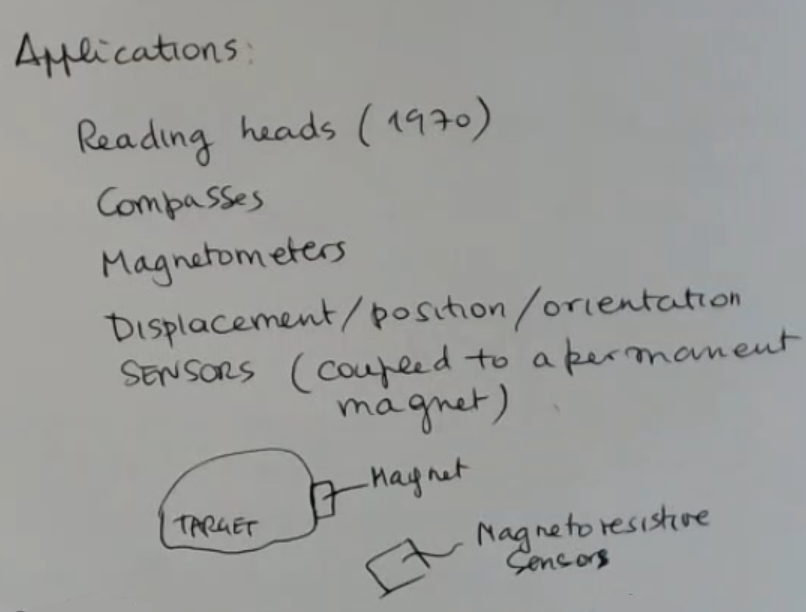 Applications:
Reading heads (1970)
Compasses
Magnetometers
Displacement/position/orientation
SENSORS (coupled to a permanent
magnet)
Magnet
TARGET
Magnetoresistive
Sensors